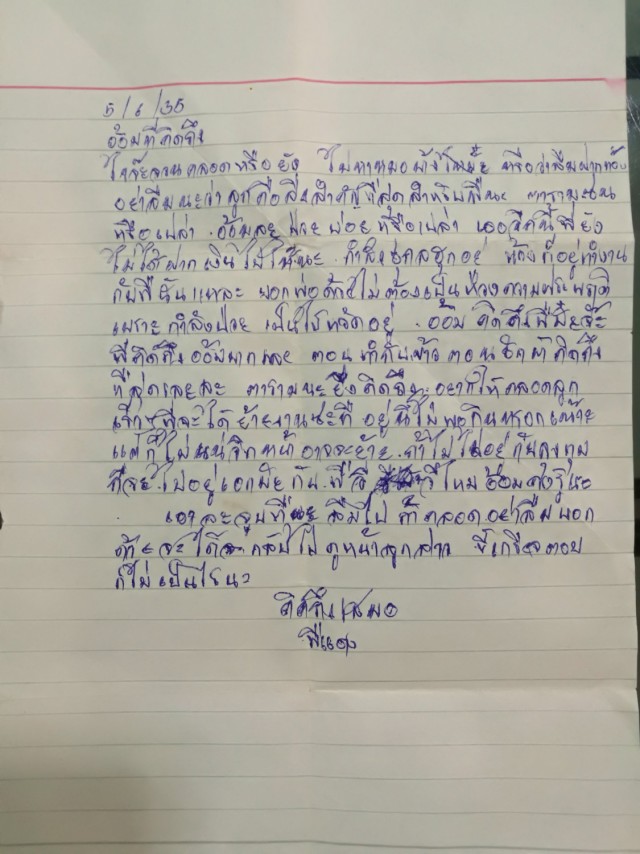 5/6/35
อ้อมที่คิดถึง
ใกล้จะคลอดหรือยัง ไปหาหมอบ้างไหมนี้ย หรือว่าลืมฝากท้อง
อย่าลืมนะว่าลูกคือสิ่งสำคัญที่สุดสำหรับพี่นะ
หรือเปล่า อ้อมละป่วยบ่อยหรือเปล่า เธอ นี้พี่ยัง
ไม่ได้ฝากเงินไปให้นะ กำลัง อยู่ ก็อยู่ทำงาน
กับพี่นั่นแหละ บอกพ่อด้วยไม่ต้องเป็นห่วง
เพราะกำลังป่วย เป็นไข้หวัดอยู่ อ้อม คิดถึงพี่มั้ยจ๊ะ
พี่คิดถึง อ้อมมากเลย ตอนทำกับข้าว ตอนซักผ้าคิดถึง
ที่สุดเลยละ นะยิ่งคิดถึง อยากให้คลอดลูก
เร็วๆ ที่จะได้ย้ายงานนะที่ อยู่นี่ไม่พอกินหรอก
แต่ก็ไม่แน่ หน้าอาจจะย้าย ถ้าไม่ไปอยู่กับลุงตุ่ม
ก็จะไปอยู่เอกชัยกัน พี่ ดีไหมอ้อม
เอาละ ลืมไป ถ้าคลอดอย่าลืมบอก
ด้วย จะได้ กลับไปดูหน้าลูกสาว ขี้เกียจตอบ
ก็ไม่เป็นไรนะ
คิดถึงเสมอ
พี่แดง